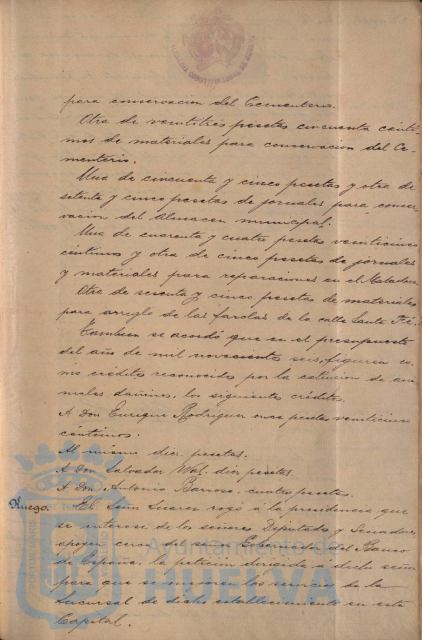 para conservacion del Cementerio.
Otra de veintitres pesetas cincuenta cénti-
mos de materiales para conservacion del Ce-
menterio.
Una de cincuenta y cinco pesetas y otra de
setenta y cinco pesetas de jornales para conser-
vacion del Almacen municipal.
Una de cuarenta y cuatro pesetas veinticinco
céntimos y otra de cinco pesetas de jornales
y materiales para reparaciones en el Matadero.
Otra de sesenta y cinco pesetas de materiales
para arreglo de las farolas de la calle Santa Fé.
Tambien se acordó que en el presupuesto
del año de mil novecientos seis, figuren co-
mo créditos reconocidos por la estincion de ani-
males dañinos, los siguientes créditos.
A Don Enrique Rodriguez once pesetas veinticinco
céntimos.
Al mismo diez pesetas.
A Don Salvador diez pesetas.
A Don Antonio Barroso cuatro pesetas.
Ruego. El Señor Suarez rogó á la presidencia que
se interese de los señores Diputados y Senadores
apoyen cerca del señor Gobernador del Banco
de España, la peticion dirigida á dicho señor
para que se mejoren los servicios de la
Sucursal de dicho establecimiento en esta
Capital.
Ayuntamiento de
HUELVA